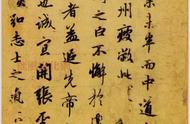 業未半而中道
州疲敝此
之臣不懈於
者盖追先帝
也誠宜開張聖
弘志士之氣